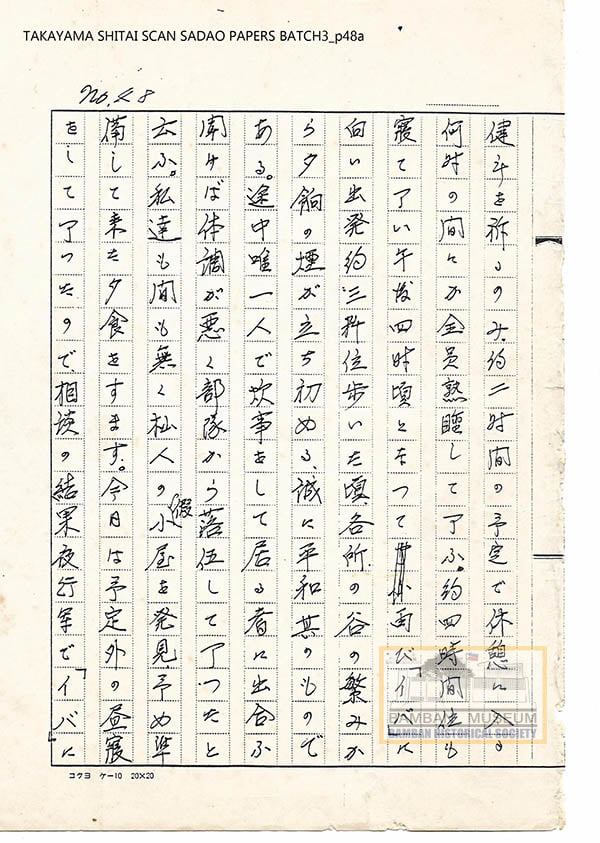 TAKAYAMA SHITAI SCAN SADAO PAPERS BATCH3_p48a
No. 48
健斗を祈るのみ、約二時間の予定で休憩に入る
何時の間にか全員熟睡して了ふ。約四時間位も
寝て了い午後四時頃となって再び「イバ」に
向い出発約三粁位歩いた頃、各所の谷の繁みか
ら夕餉の煙が立ち初める、誠に平和其のもので
ある。途中唯一人で炊事をして居る者に出合ふ
聞けば体調が悪く部隊から落伍して了つたと
云ふ。私達も間も無く私人の仮小屋を発見、予め準
備して来た夕食をすます。今日は予定外の昼寝
をして了つたので、相談の結果夜行軍で「イバ」に
BAMBAN MUSEUM
BAMBAN HISTORICAL SOCIETY
コクヨ ケー10 20×20